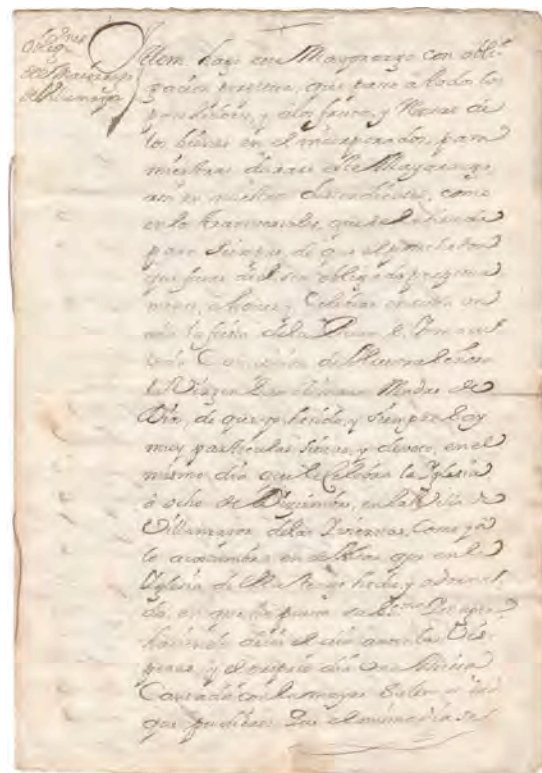 Oblig.nes
del Mayorazgo
de Villamayor
Ittem. hago este Mayorazgo con obli-
gación perpetua, que passe a todos los
posehedores, y a los frutos, y Rentas de
los bienes en el incorporados, para
mientras durare este Mayorazgo,
assi en nuestros descendientes, como
en los transversales, que
para siempre, de que el posehedor
que fuere del sea obligado
a hacer, y Celebrar en cada un
año la fiesta de la Pura, e Inmacul
lada Concepcion de Nuestra Señora
la Virgen Santissima Madre de
Dios, de que yo he sido, y siempre soy
muy particular siervo, y devoto, en el
mismo dia que la Celebra la Iglesia
a ocho de Diziembre, en la Villa de
Villamayor de las Ivernias, como yo
lo acostumbro en el Altar que en la
Iglesia de ella tengo hecho, y adorna
do, en que ha puesto su
haciendo decir el dia antes las Vis-
peras, y el proprio dia una Missa
Cantada con la mayor solemnidad
que pudiere. Que el mismo dia se